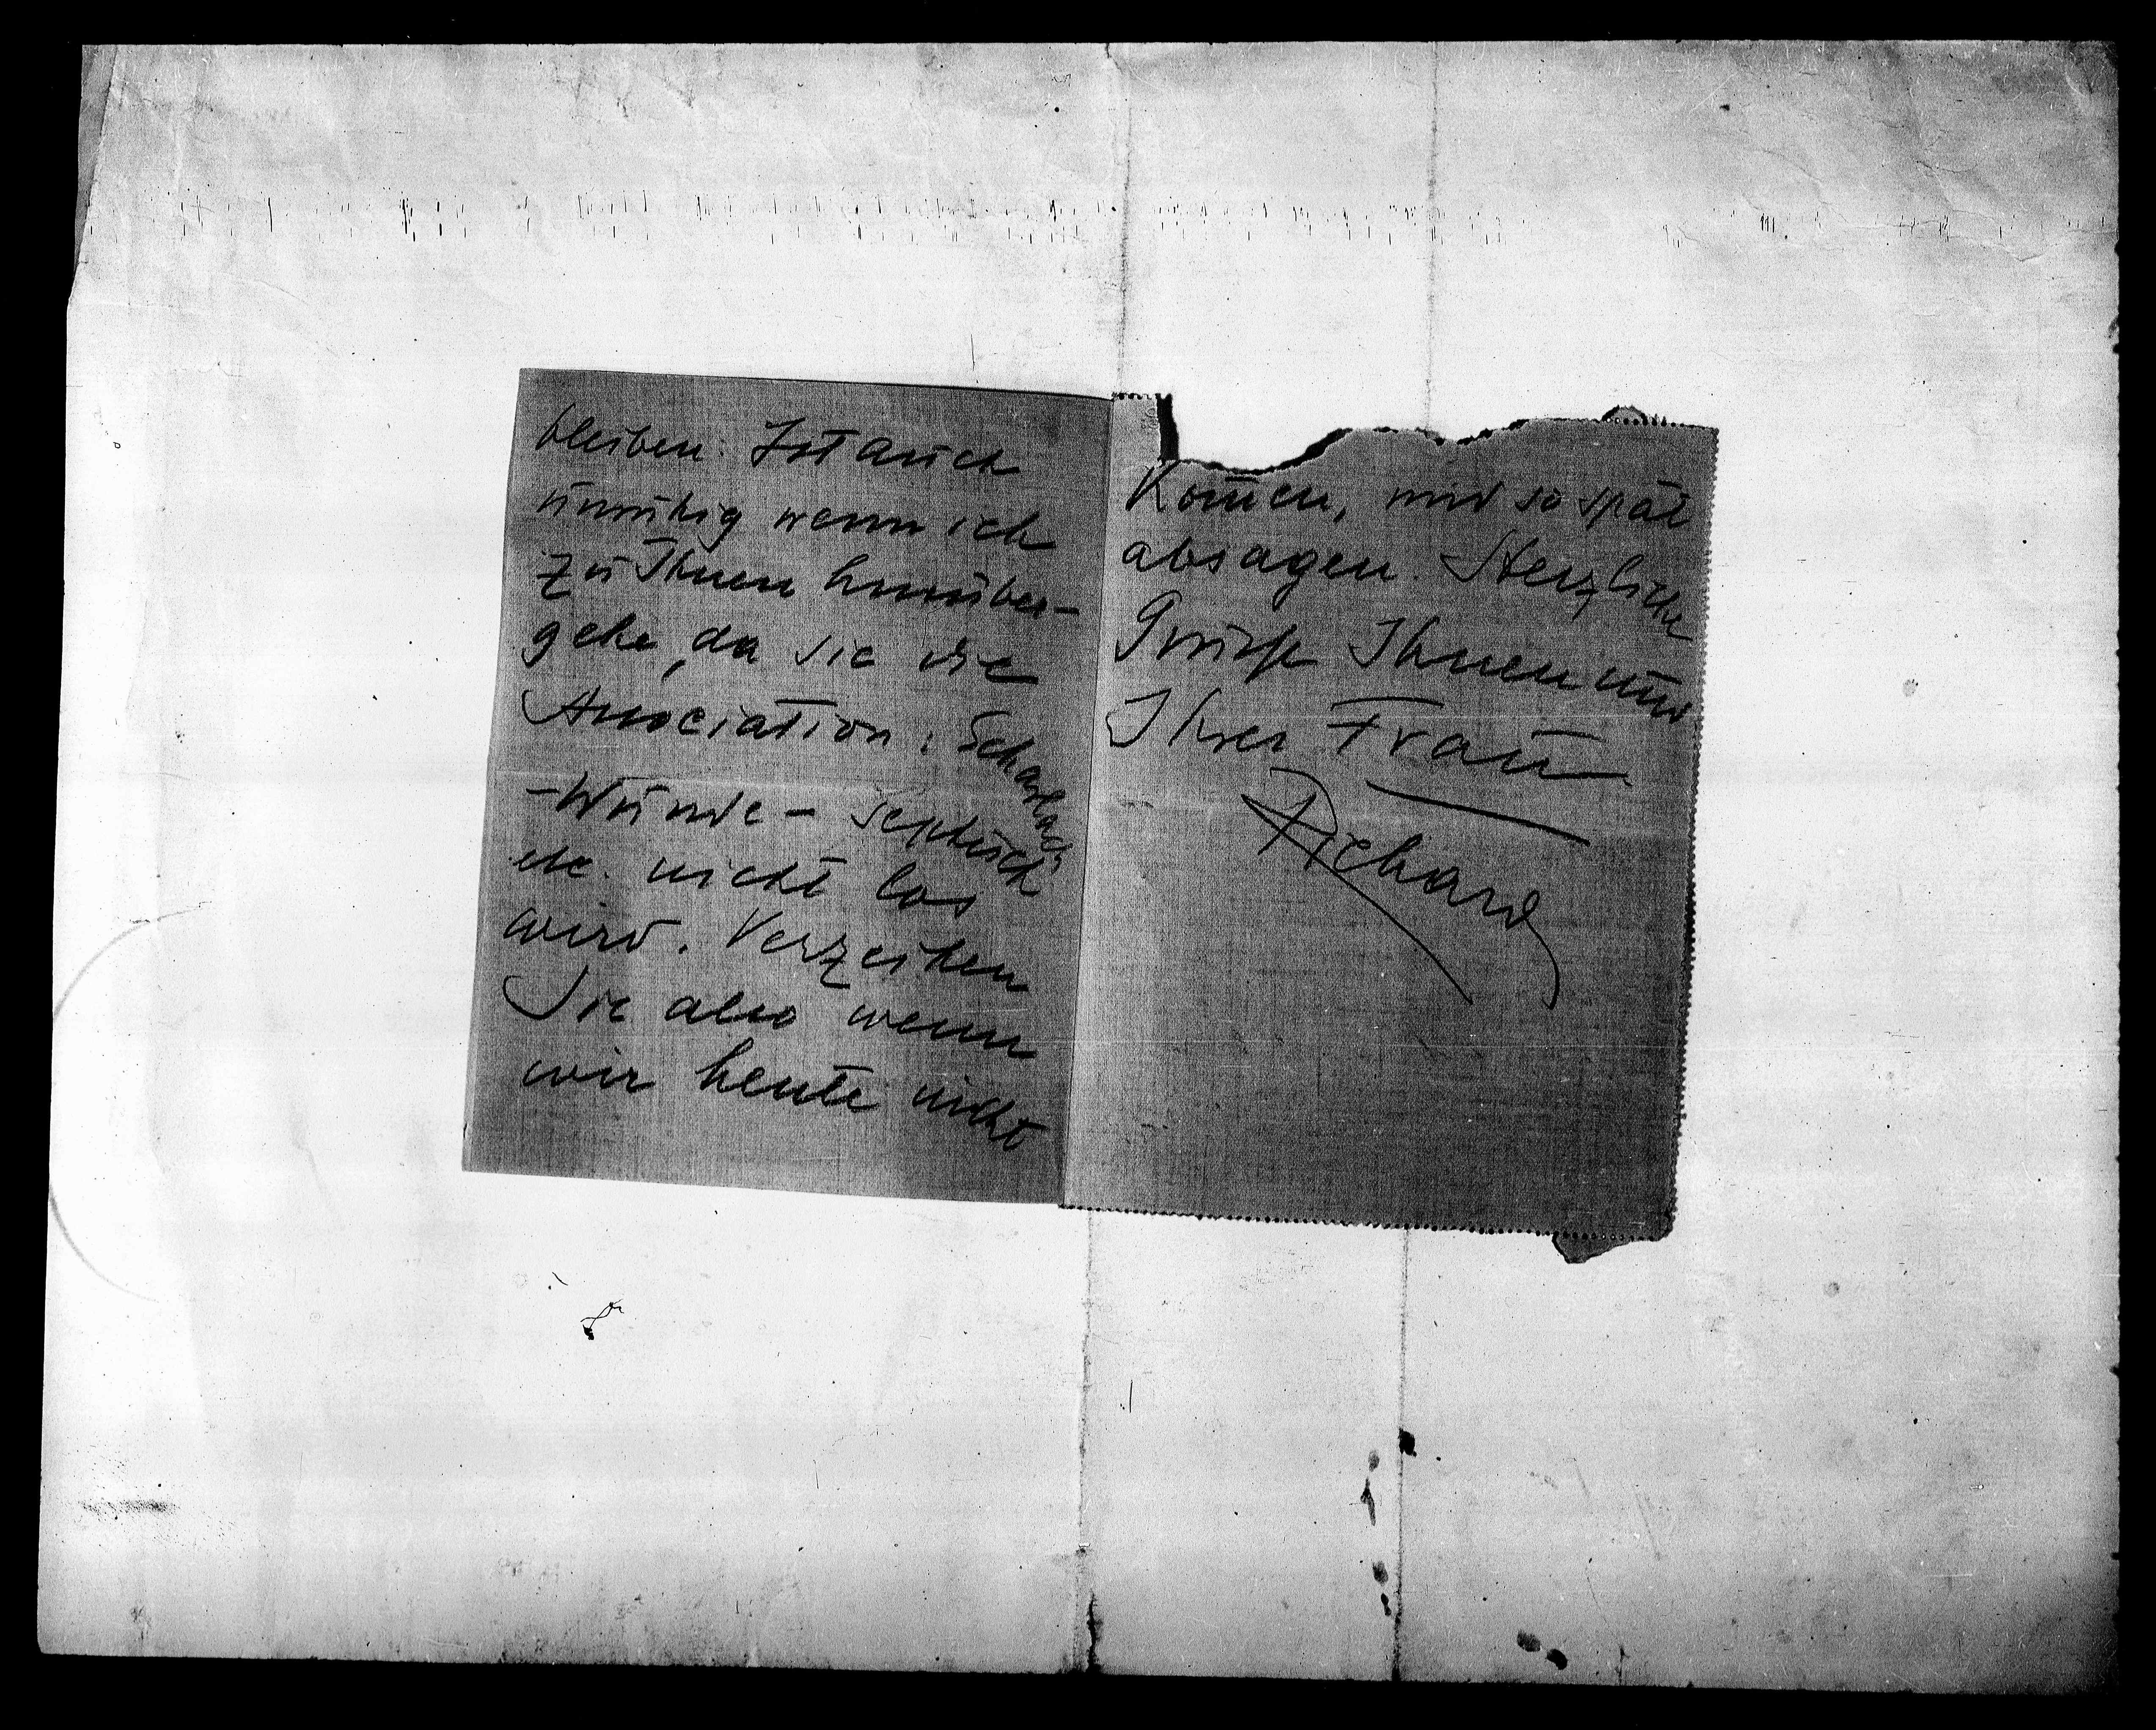 bleiben. Ist auch
unruhig wenn ich
zu Ihnen hinüber-
gehe, da sie die
Association: Scharlach
-Wunde - septisch
etc. nicht los
wird. Verzeihen
Sie also wenn
wir heute nicht
kom̅en, und so spät
absagen. Herzliche
Grüße Ihnen und
Ihrer Frau
Richard